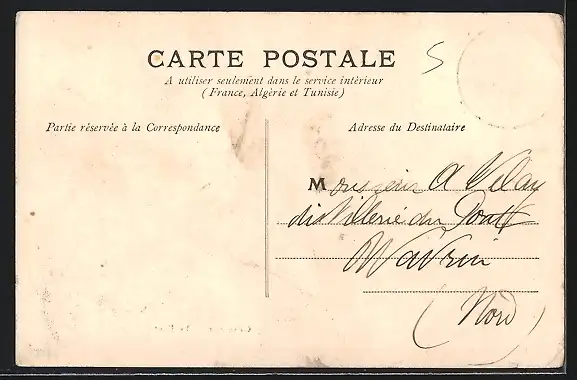 CARTE POSTALE
5
A utiliser seulement dans le service intérieur
(France, Algérie et Tunisie)
Partie réservée à la Correspondance
Adresse du Destinataire
Monsieur A
distillerie du Pont
Wavrin
(Nord)